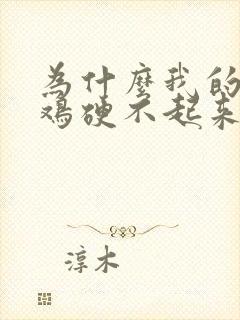 為什麼我的
鸡硬不起来
淳木